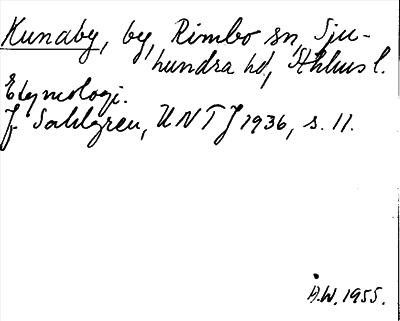 Kunaby, by, Rimbo sn, Sju-
hundra hd, Sthlms l.
Etymologi.
J. Sahlgren, UNTJ 1936, s. 11.
Å.W. 1955.